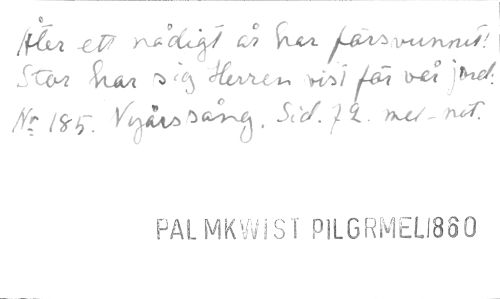 Åter ett nådigt år har försvunnit!
Stor har sig Herren vist för vår jord.
No 185. Nyårssång. Sid. 72. med not.
PALMKWIST PILGRMEL1860